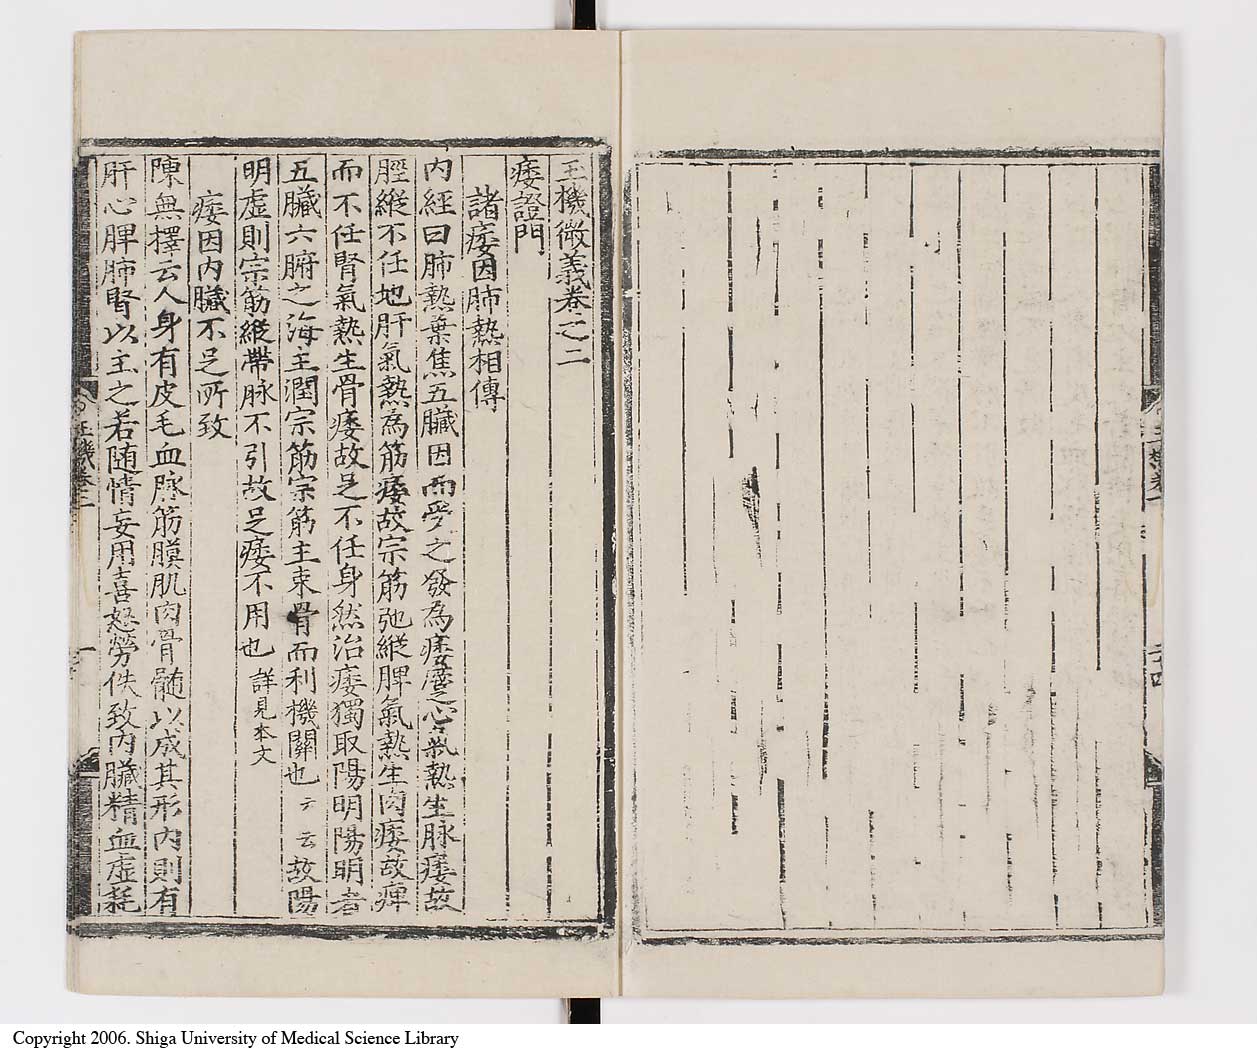 玉機微義卷之二
痿證門
諸痿因肺熱相傳
内經曰肺熱葉焦五臟因而受之發為痿躄心氣熱生脉痿故
脛縱不任地肝氣熱為筋痿故宗筋弛縱脾氣熱生肉痿故痺
而不任腎氣熱生骨痿故足不任身然治痿獨取陽明陽明者
五臟六腑之海主潤宗筋宗筋主束骨而利機關也云云故陽
明虛則宗筋縱帶脉不引故足痿不用也詳見本文
痿因内臟不足所致
陳無擇云人身有皮毛血脉筋膜肌肉骨髓以成其形内則有
肝心脾肺腎以主之若随情妄用喜怒勞佚致内臟精血虛耗
玉機卷二
一
二十四
Copyright 2006. Shiga University of Medical Science Library